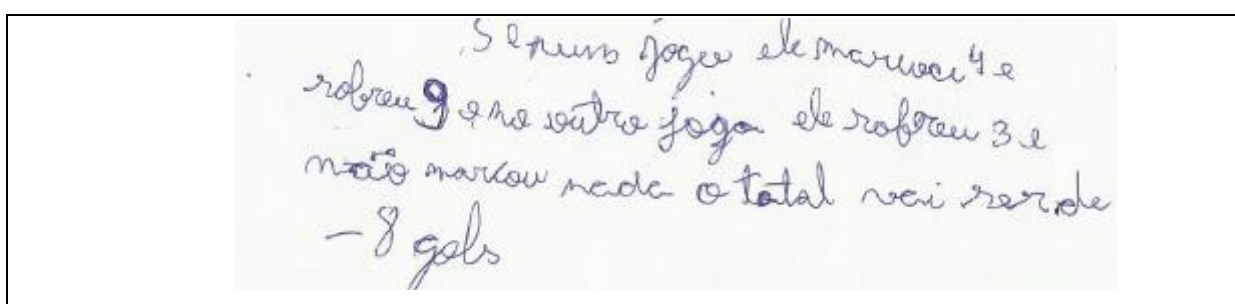 Se num jogo ele marcou 4 e
sofreu 9 e no outro jogo ele sofreu 3 e
não markou nada o total vai ser de
-8 gols